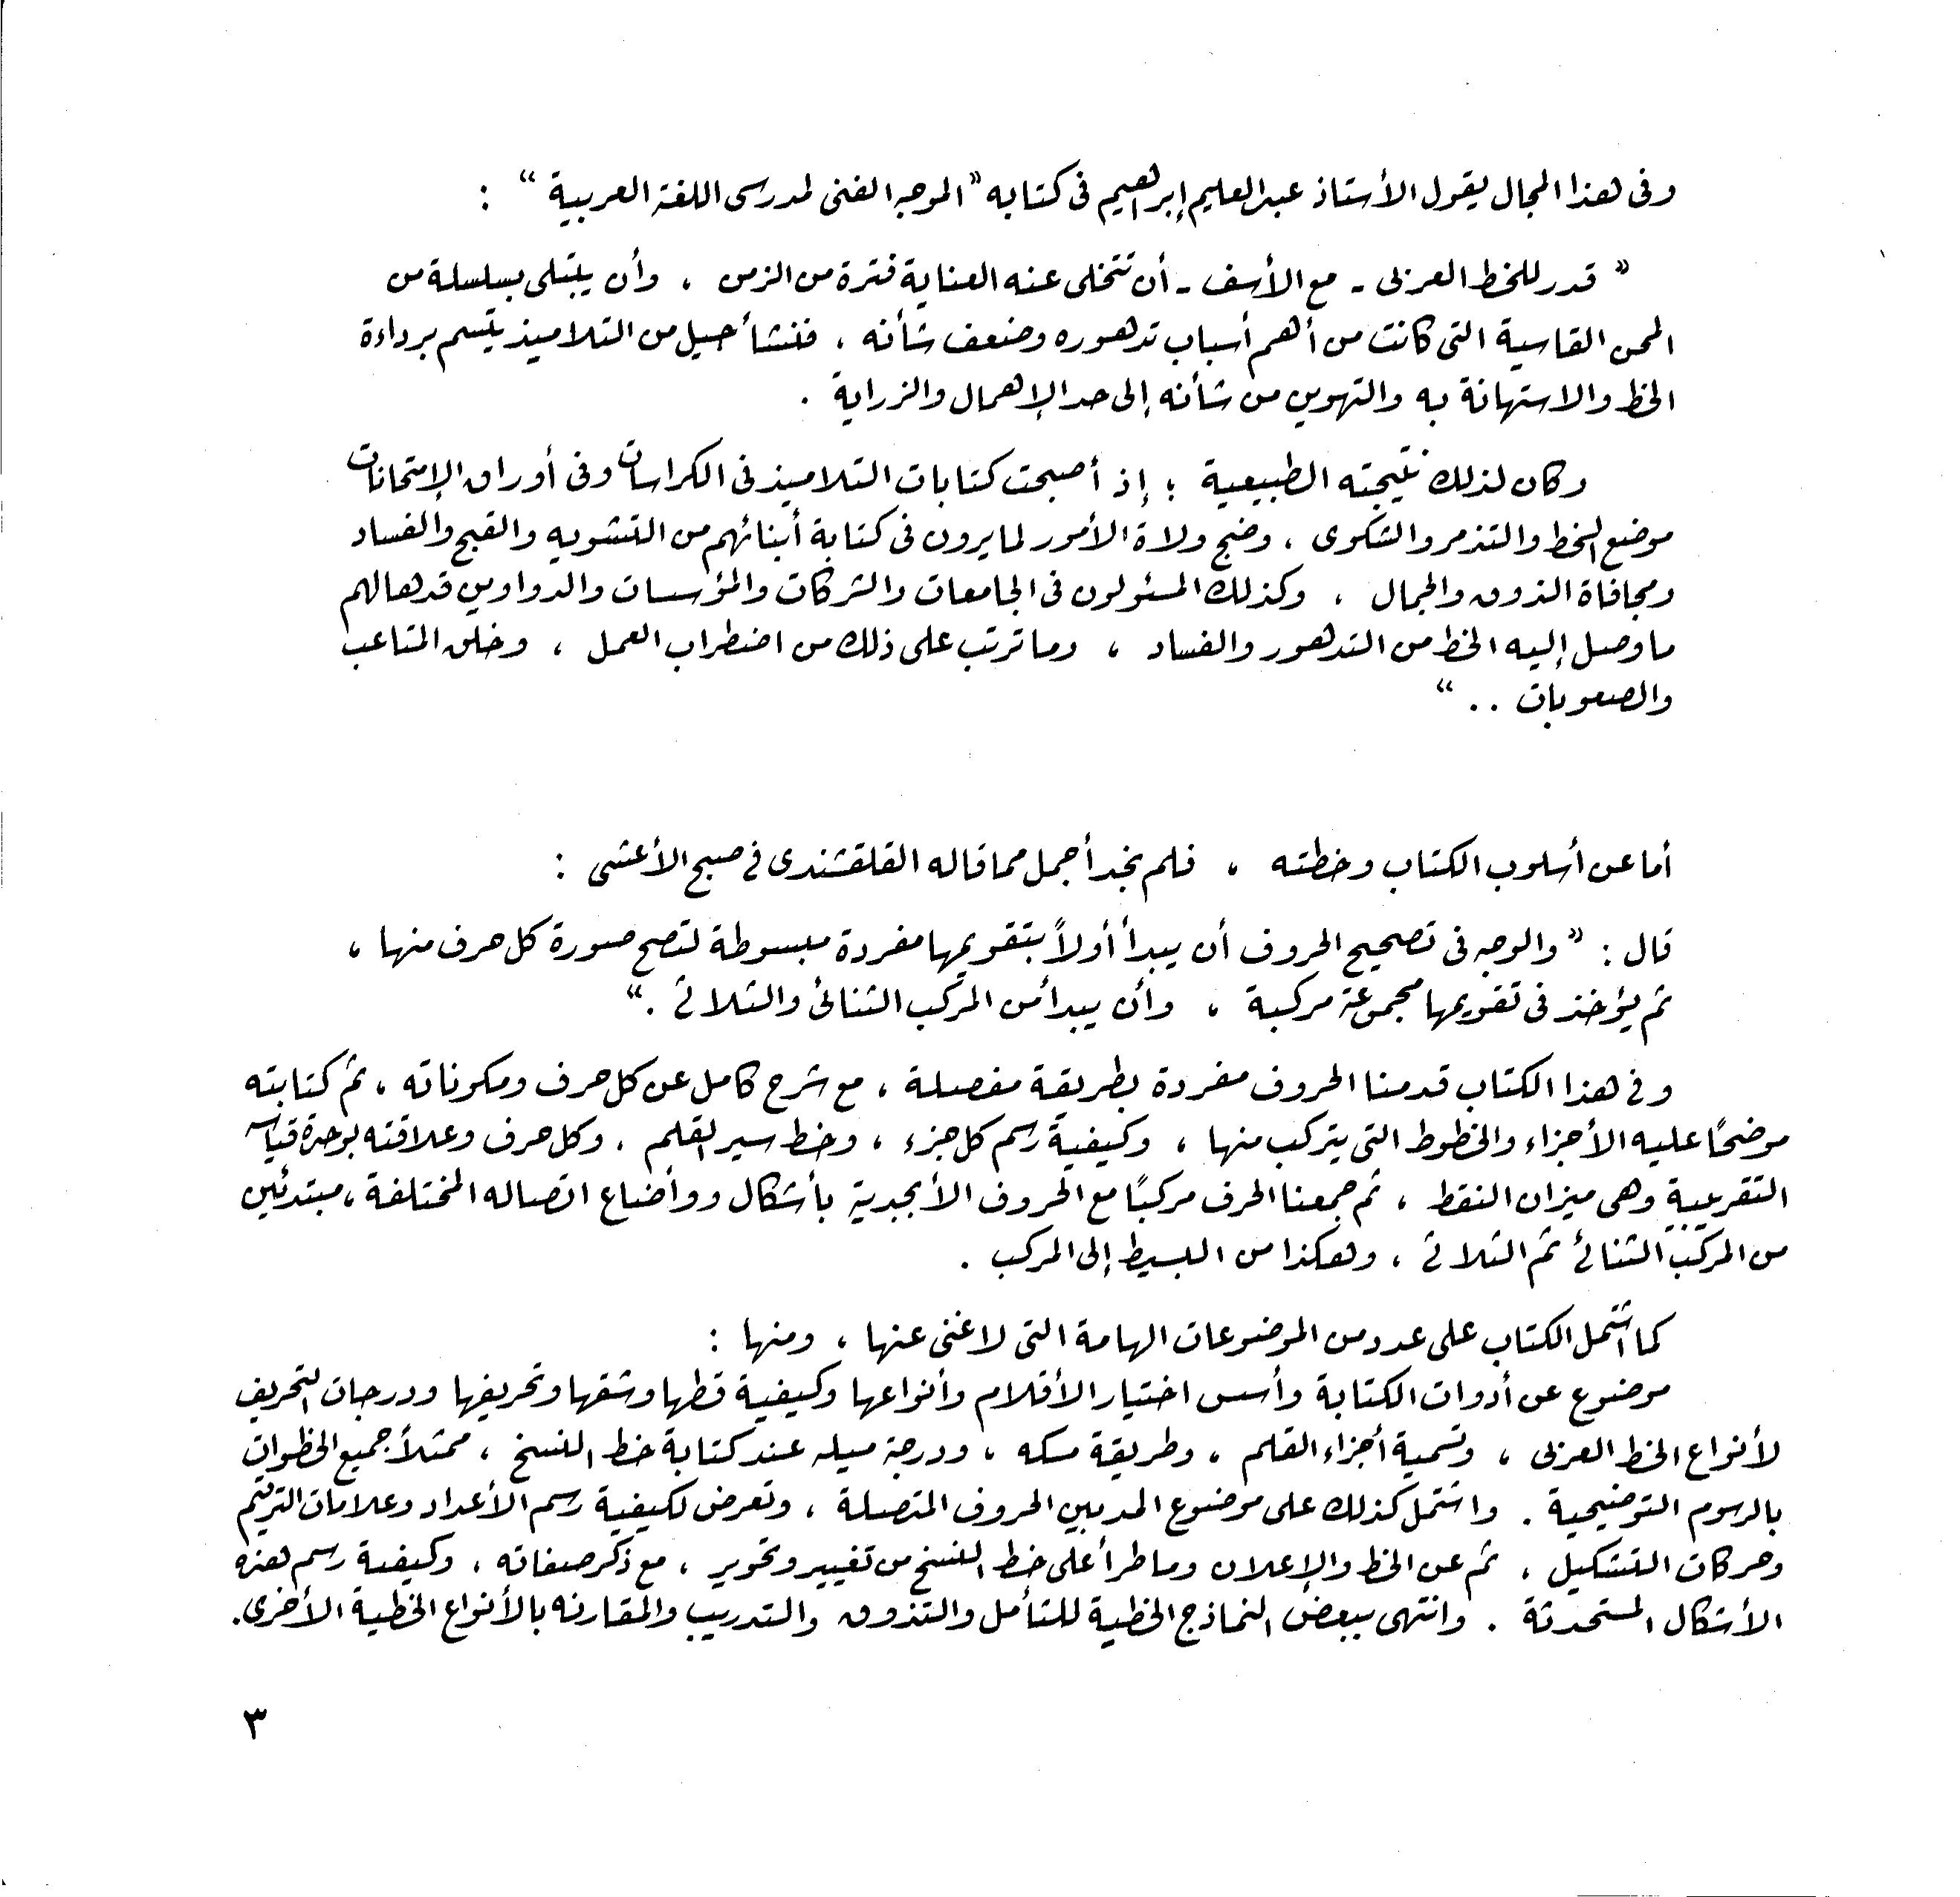 وفى هذا المجال يقول الأستاذ عبدالعليم إبراهيم فى كتابه "الموجه الفنى لمدرسى اللغة العربية" :
" قدر للخط العربى - مع الأسف - أن تتخلى عنه العناية فترة من الزمن ، وأن يبتلى بسلسلة من
المحن القاسية التى كانت من أهم أسباب تدهوره وضعف شأنه ، فنشأ جيل من التلاميذ يتسم برداءة
الخط والاستهانة به والتهوين من شأنه إلى حد الإهمال والزراية .
وكان لذلك نتيجته الطبيعية ؛ إذ أصبحت كتابات التلاميذ فى الكراسات وفى أوراق الإمتحانات
موضع السخط والتذمر والشكوى ، وضج ولاة الأمور لما يرون فى كتابة أبنائهم من التشويه والقبح والفساد
ومجافاة الذوق والجمال ، وكذلك المسئولون فى الجامعات والشركات والمؤسسات والدواوين قد هالهم
ما وصل إليه الخط من التدهور والفساد ، وما ترتب على ذلك من اضطراب العمل ، وخلق المتاعب
والصعوبات .. "
أما عن أسلوب الكتاب وخطته ، فلم نجد أجمل مما قاله القلقشندى فى صبح الأعشى :
قال : " والوجه فى تصحيح الحروف أن يبدأ أولاً بتقويمها مفردة مبسوطة لتصح صورة كل حرف منها ،
ثم يؤخذ فى تقويمها مجموعة مركبة ، وأن يبدأ من المركب الثنائى والثلاثى ."
وفى هذا الكتاب قدمنا الحروف مفردة بطريقة مفصلة ، مع شرح كامل عن كل حرف ومكوناته ، ثم كتابته
موضحًا عليه الأجزاء والخطوط التى يتركب منها ، وكيفية رسم كل جزء ، وخط سير القلم . وكل حرف وعلاقته بوحدة قياسه
التقريبية وهى ميزان النقط ، ثم جمعنا الحرف مركبًا مع الحروف الأبجدية بأشكال وأوضاع اتصاله المختلفة ، مبتدئين
من المركب الثنائى ثم الثلاثى ، وهكذا من البسيط إلى المركب .
كما اشتمل الكتاب على عدد من الموضوعات الهامة التى لا غنى عنها ، ومنها :
موضوع عن أدوات الكتابة وأسس اختيار الأقلام وأنواعها وكيفية قطها وشقها وتحريفها ودرجات التحريف
لأنواع الخط العربى ، وتسمية أجزاء القلم ، وطريقة مسكه ، ودرجة ميله عند كتابة خط النسخ ، ممثلاً جميع الخطوات
بالرسوم التوضيحية . واشتمل كذلك على موضوع المد بين الحروف المتصلة ، وتعرض لكيفية رسم الأعداد وعلامات الترقيم
وحركات التشكيل ، ثم عن الخط والإعلان وما طرأ على خط النسخ من تغيير وتحوير ، مع ذكر صفاته ، وكيفية رسم هذه
الأشكال المستحدثة . وانتهى ببعض النماذج الخطية للتأمل والتذوق والتدريب والمقارنه بالأنواع الخطية الأخرى.
٣